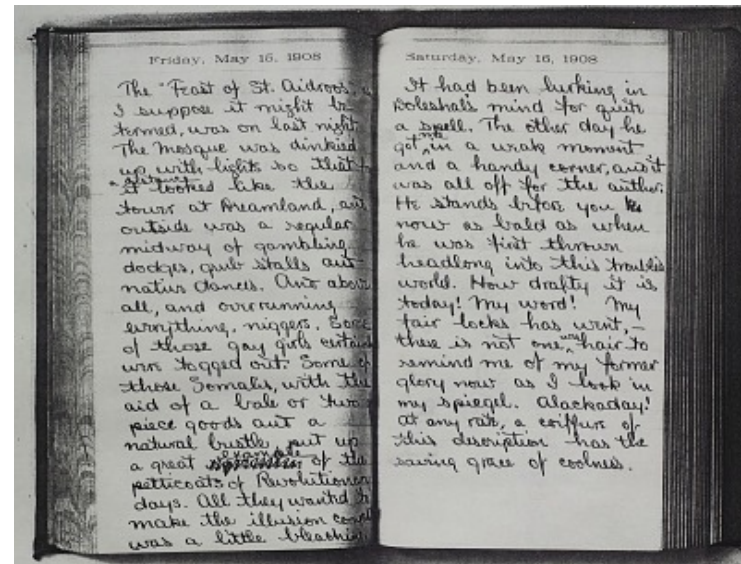 Friday, May 15, 1908
The "Feast of St. Aidroos,
I suppose it might be
termed, was on last night.
The mosque was dinkied
up with lights so that
at distance
it looked like the
tower at Dreamland, and
outside was a regular
midway of gambling
dodges, grub stalls and
native dances. And above
all, and overrunning
everything, niggers. Some
of those gay girls certainly
were togged out. Some of
those Somalis, with the
aid of a bale or two of
piece goods and a
natural bustle, put up
example
a great of the
petticoats of Revolutionary
days. All they wanted to
make the illusion complete
was a little bleaching
Saturday, May 16, 1908
It had been lurking in
Boleshal's mind for quite
a spell. The other day he
me
got in a weak moment
and a handy corner, and it
was all off for the author.
He stands before you
now as bald as when
he was first thrown
headlong into this troubled
world. How drafty it is
today! My word! My
fair locks has went, –
there is not one wee hair to
remind me of my former
glory now as I look in
my spiegel. Alackaday!
At any rate, a coiffure of
this description has the
saving grace of coolness.